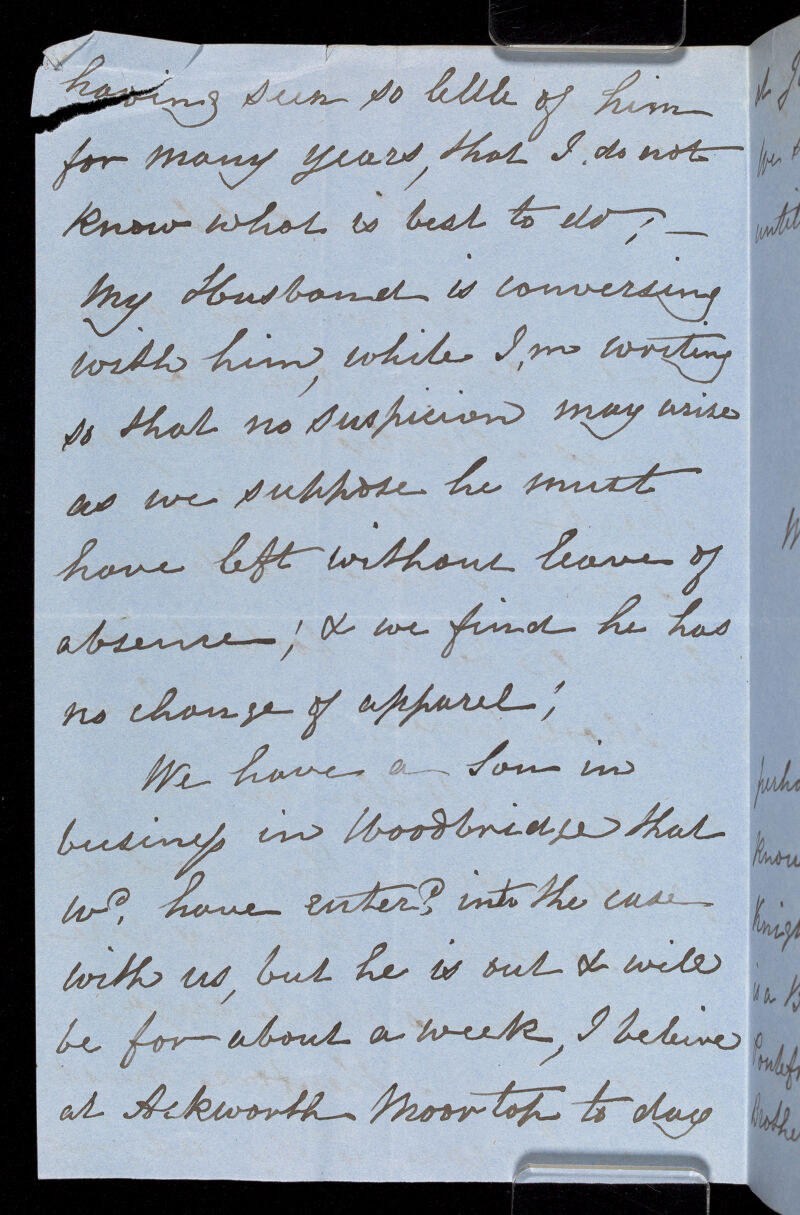 having seen so little of him
for many years, that I do not
know what is best to do; –
My Husband is conversing
with him, while I,m writing
so that no suspicion may arise
as we suppose he must
have left without leave of
absence; & we find he has
no change of apparel;
We have a Son in
business in Woodbridge that
wd. have enterd. into the case
with us, but he is out & will
be for about a week, I beleive
at Ackworth Moor top to day
until
Brothe